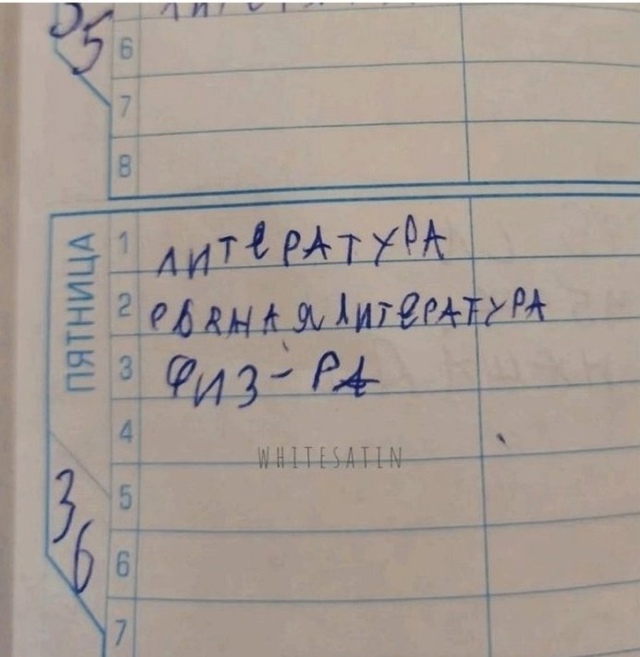 5
6
7
8
ПЯТНИЦА
1 ЛИТЕРАТУРА
2 РОДНАЯ ЛИТЕРАТУРА
3 ФИЗ-РА
4
WHITESATIN
3
5
6
6
7